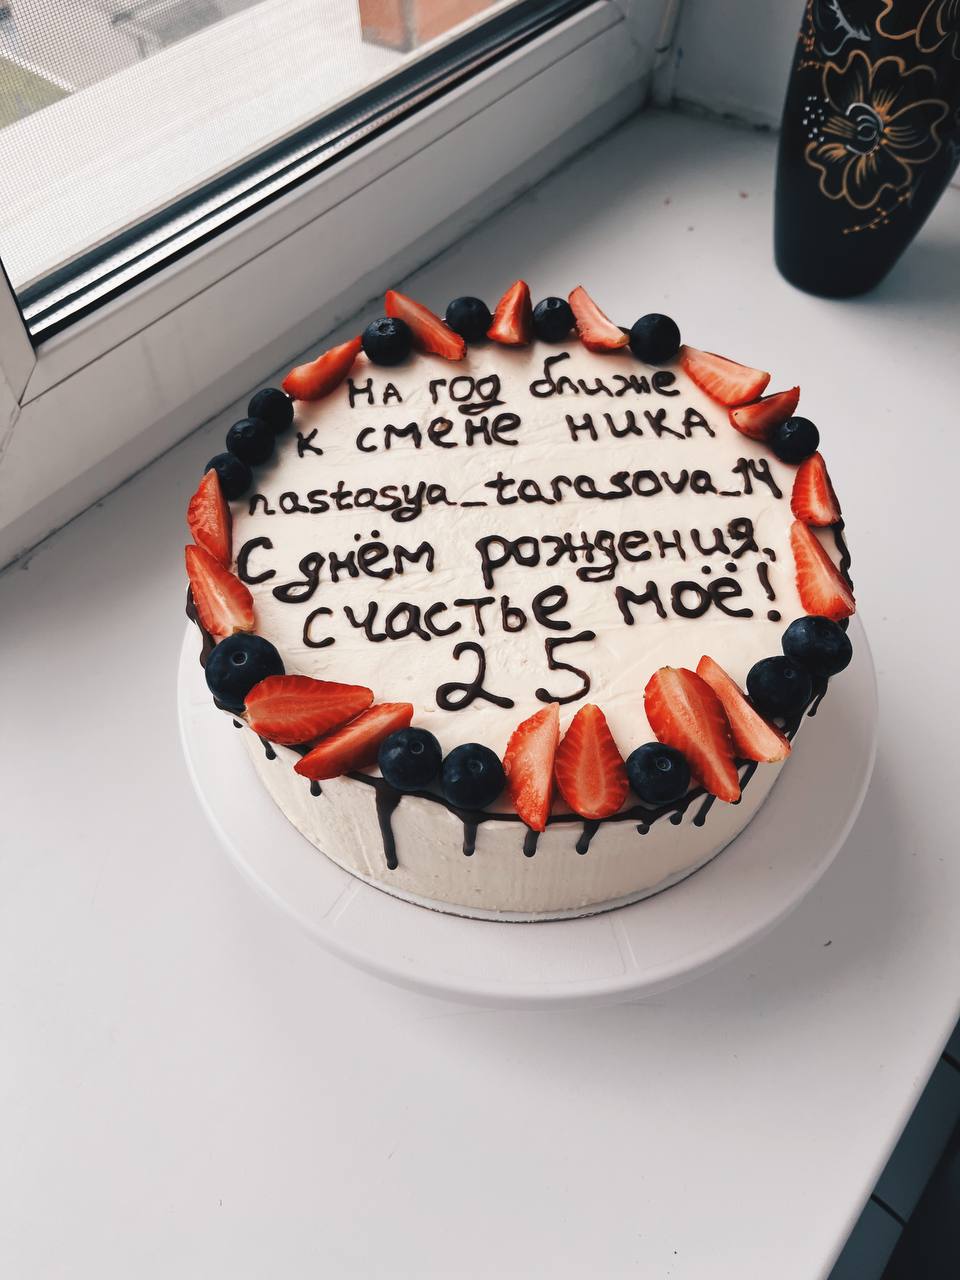 на год ближе
к смене ника
nastasya_tarasova_14
С днём рождения,
счастье моё!
25